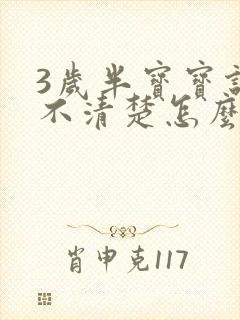 3歲半寶寶
不清楚怎麼
肖申克117